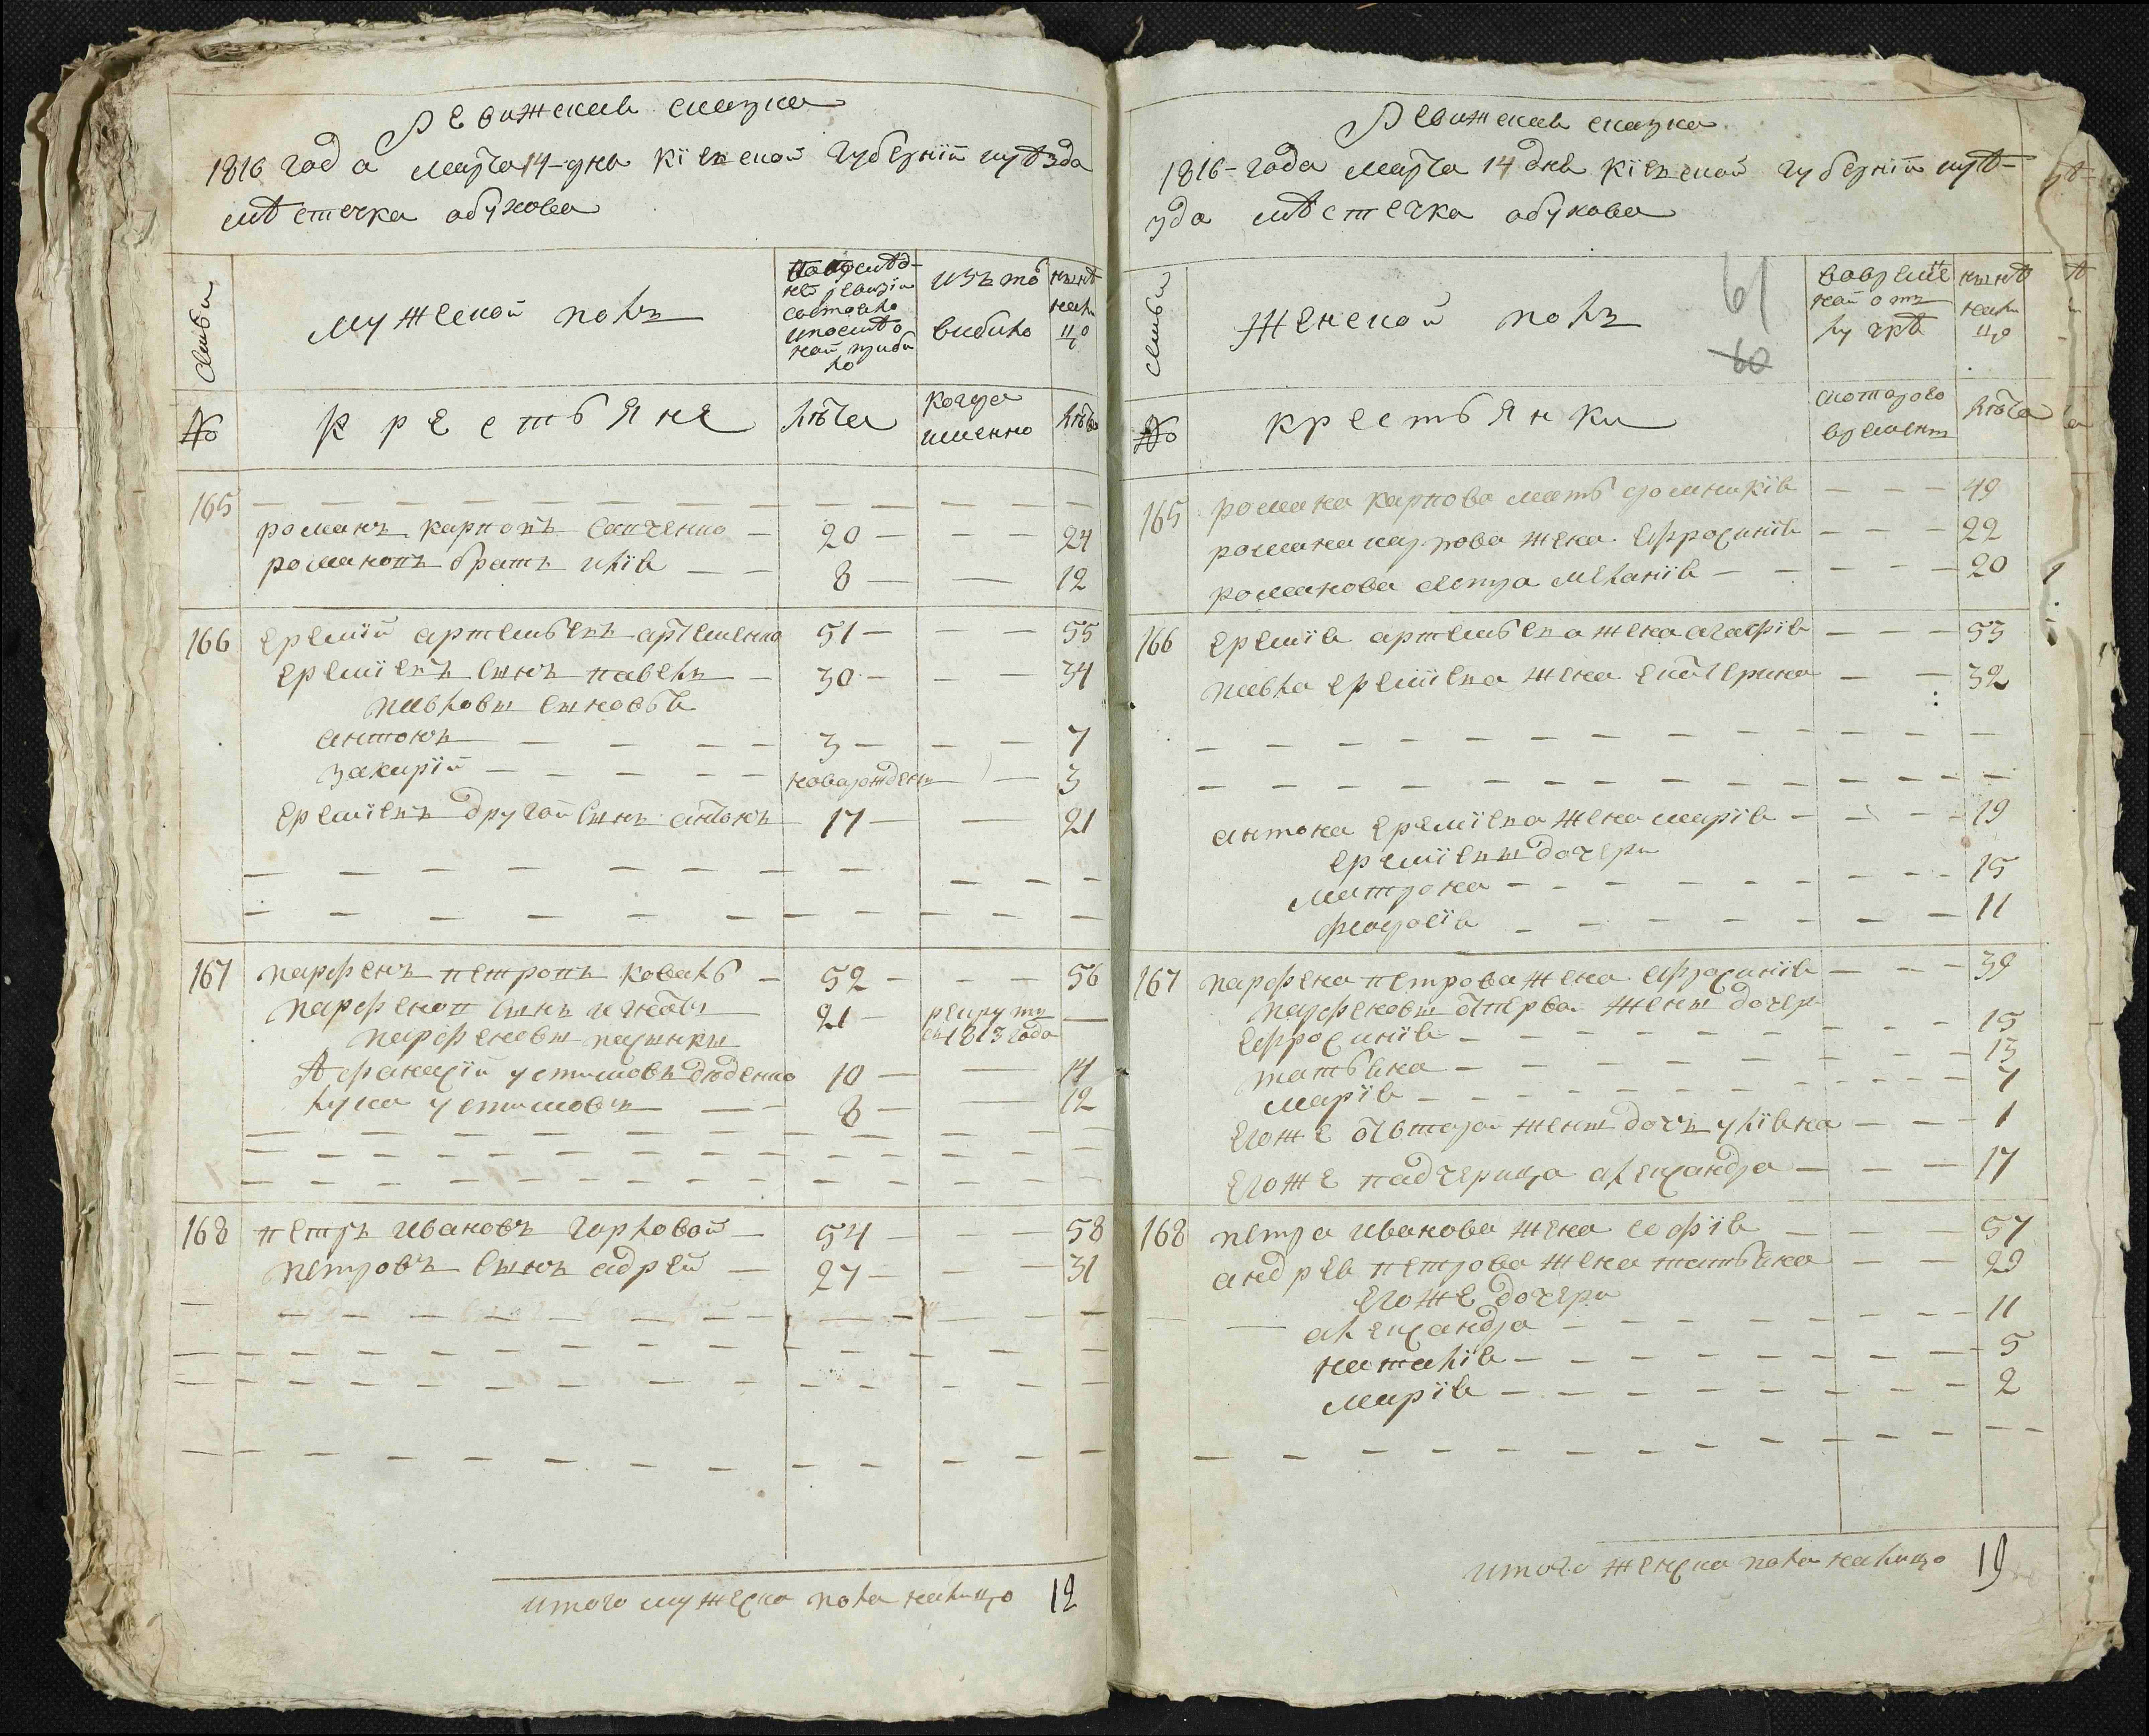 Ревижская сказка
1816 года марта 14-дня Кіевской губерніи уѣзда
мѣстечка обухова
Семьи
мужеской полъ
По послед-
ней ревизіи
состояло
и после то
най прибы
ло
изъ то
выбыло
нынѣ
нали
цо
№
крестьяне
лѣта
когда
именно
лѣта
165
романъ карповъ сапченко 20 24
романовъ братъ илія 8 12
166 еремій артемьевъ артеменко 51 55
еремієвъ сынъ павелъ 30 34
павловы сыновья
антонъ 3 7
захарій новорожденъ 3
еремієвъ другой сынъ антонъ 17 21
167 парфенъ петровъ коваль 52 56
парфенов сынъ игнатъ 21 рекрутъ
въ 1813 года
парфеновы пасынки
Афанасій устимовъ дюденко 10 14
лука устимовъ 8 12
168 петръ ивановъ горловой 54 58
петровъ сынъ адрей 27 31
итого мужеска пола налицо 12
Ревижская сказка
1816-года марта 14 дня Кіевской губерніи уѣ-
зда мѣстечка обухова
Семьи
Женской полъ
61
60
во време
ной отъ
лу чкѣ
нынѣ
нали
цо
№
крестьянки
с которого
времени
лѣта
165 романа карпова мать домникія 49
романа карпова жена Ефросинія 22
романова сестра меланія 20
166 еремія артемьева жена агафія 53
павла ереміева жена екатерина 32
антона ереміева жена марія 19
ереміевы дочери
матрона 15
феодосія 11
167 парфена петрова жена ефросинія 39
парфеновы отперва жены дочер
Ефросинія 15
татьяна 13
марія 7
егоже отвторои жены дочъ уліяна 1
егоже падчерица александра 17
168 петра иванова жена софія 57
андрея петрова жена татьяна 29
егоже дочери
александра 11
наталія 5
марія 2
итого женска пола налицо 19